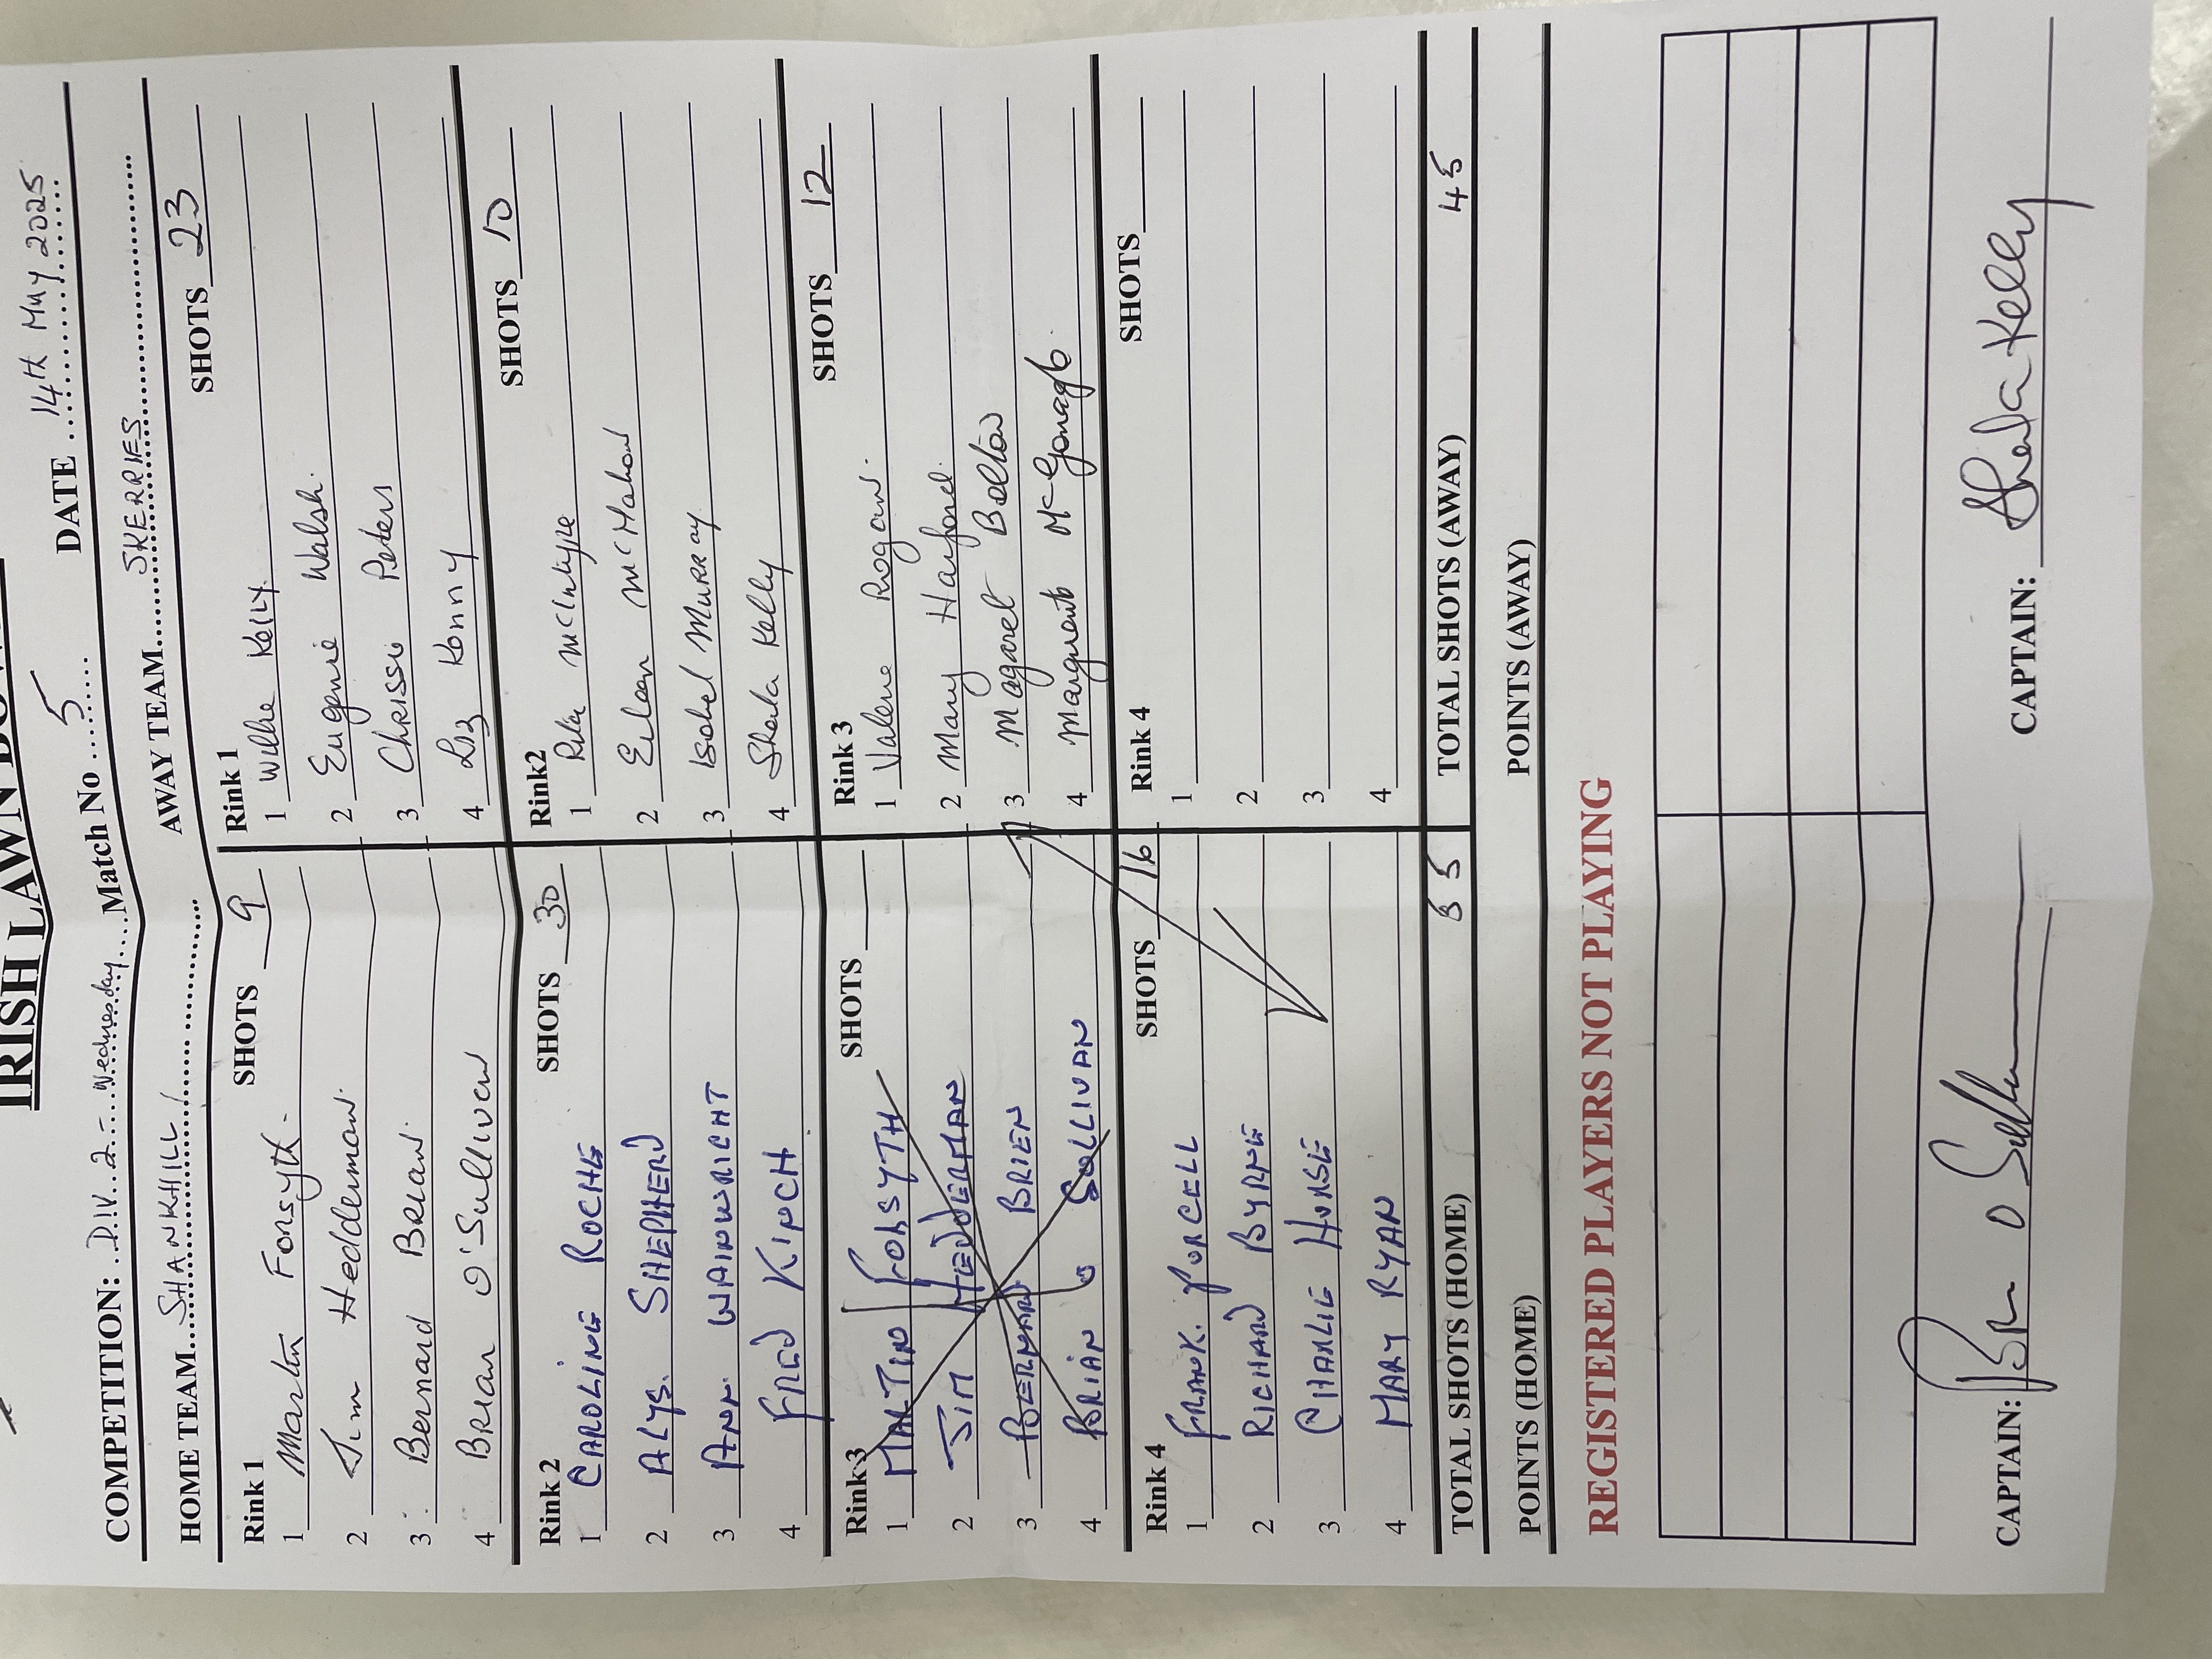 IRISH LAWN
COMPETITION: DIV. 2 - Wednesday Match No 5 DATE 14th May 2025
HOME TEAM SHANKHILL AWAY TEAM SKERRIES
Rink 1 SHOTS 9
1 Martin Forsyth.
2 Jim Heddeman.
3 Bernard Brian.
4 Brian O'Sullivan
Rink 2 SHOTS 30
1 CAROLINE ROCHE
2 ALYS. SHEPHERD
3 ANN. WAINWRIGHT
4 FRED KINCH
Rink 3 SHOTS
1 MARTIN FORSYTH
2 JIM HEDDERMAN
3 BERNARD BRIEN
4 BRIAN O SULLIVAN
Rink 4 SHOTS 16
1 FRANK. PURCELL
2 RICHARD BYRNE
3 CHARLIE HURSE
4 MARY RYAN
TOTAL SHOTS (HOME) 55
POINTS (HOME)
Rink 1 SHOTS 23
1 Willie Kelly.
2 Eugenie Walsh.
3 Chrissie Peters
4 Liz Kenny
Rink2 SHOTS 10
1 Rita McIntyre
2 Eileen McMahon
3 Isobel Murray
4 Sheila Kelly
Rink 3 SHOTS 12
1 Valerie Rogan.
2 Mary Harford.
3 Magaret Bolton
4 Marguerite McGonagle
Rink 4 SHOTS
1
2
3
4
TOTAL SHOTS (AWAY) 45
POINTS (AWAY)
REGISTERED PLAYERS NOT PLAYING
CAPTAIN: Brian O Sullivan CAPTAIN: Sheila Kelly